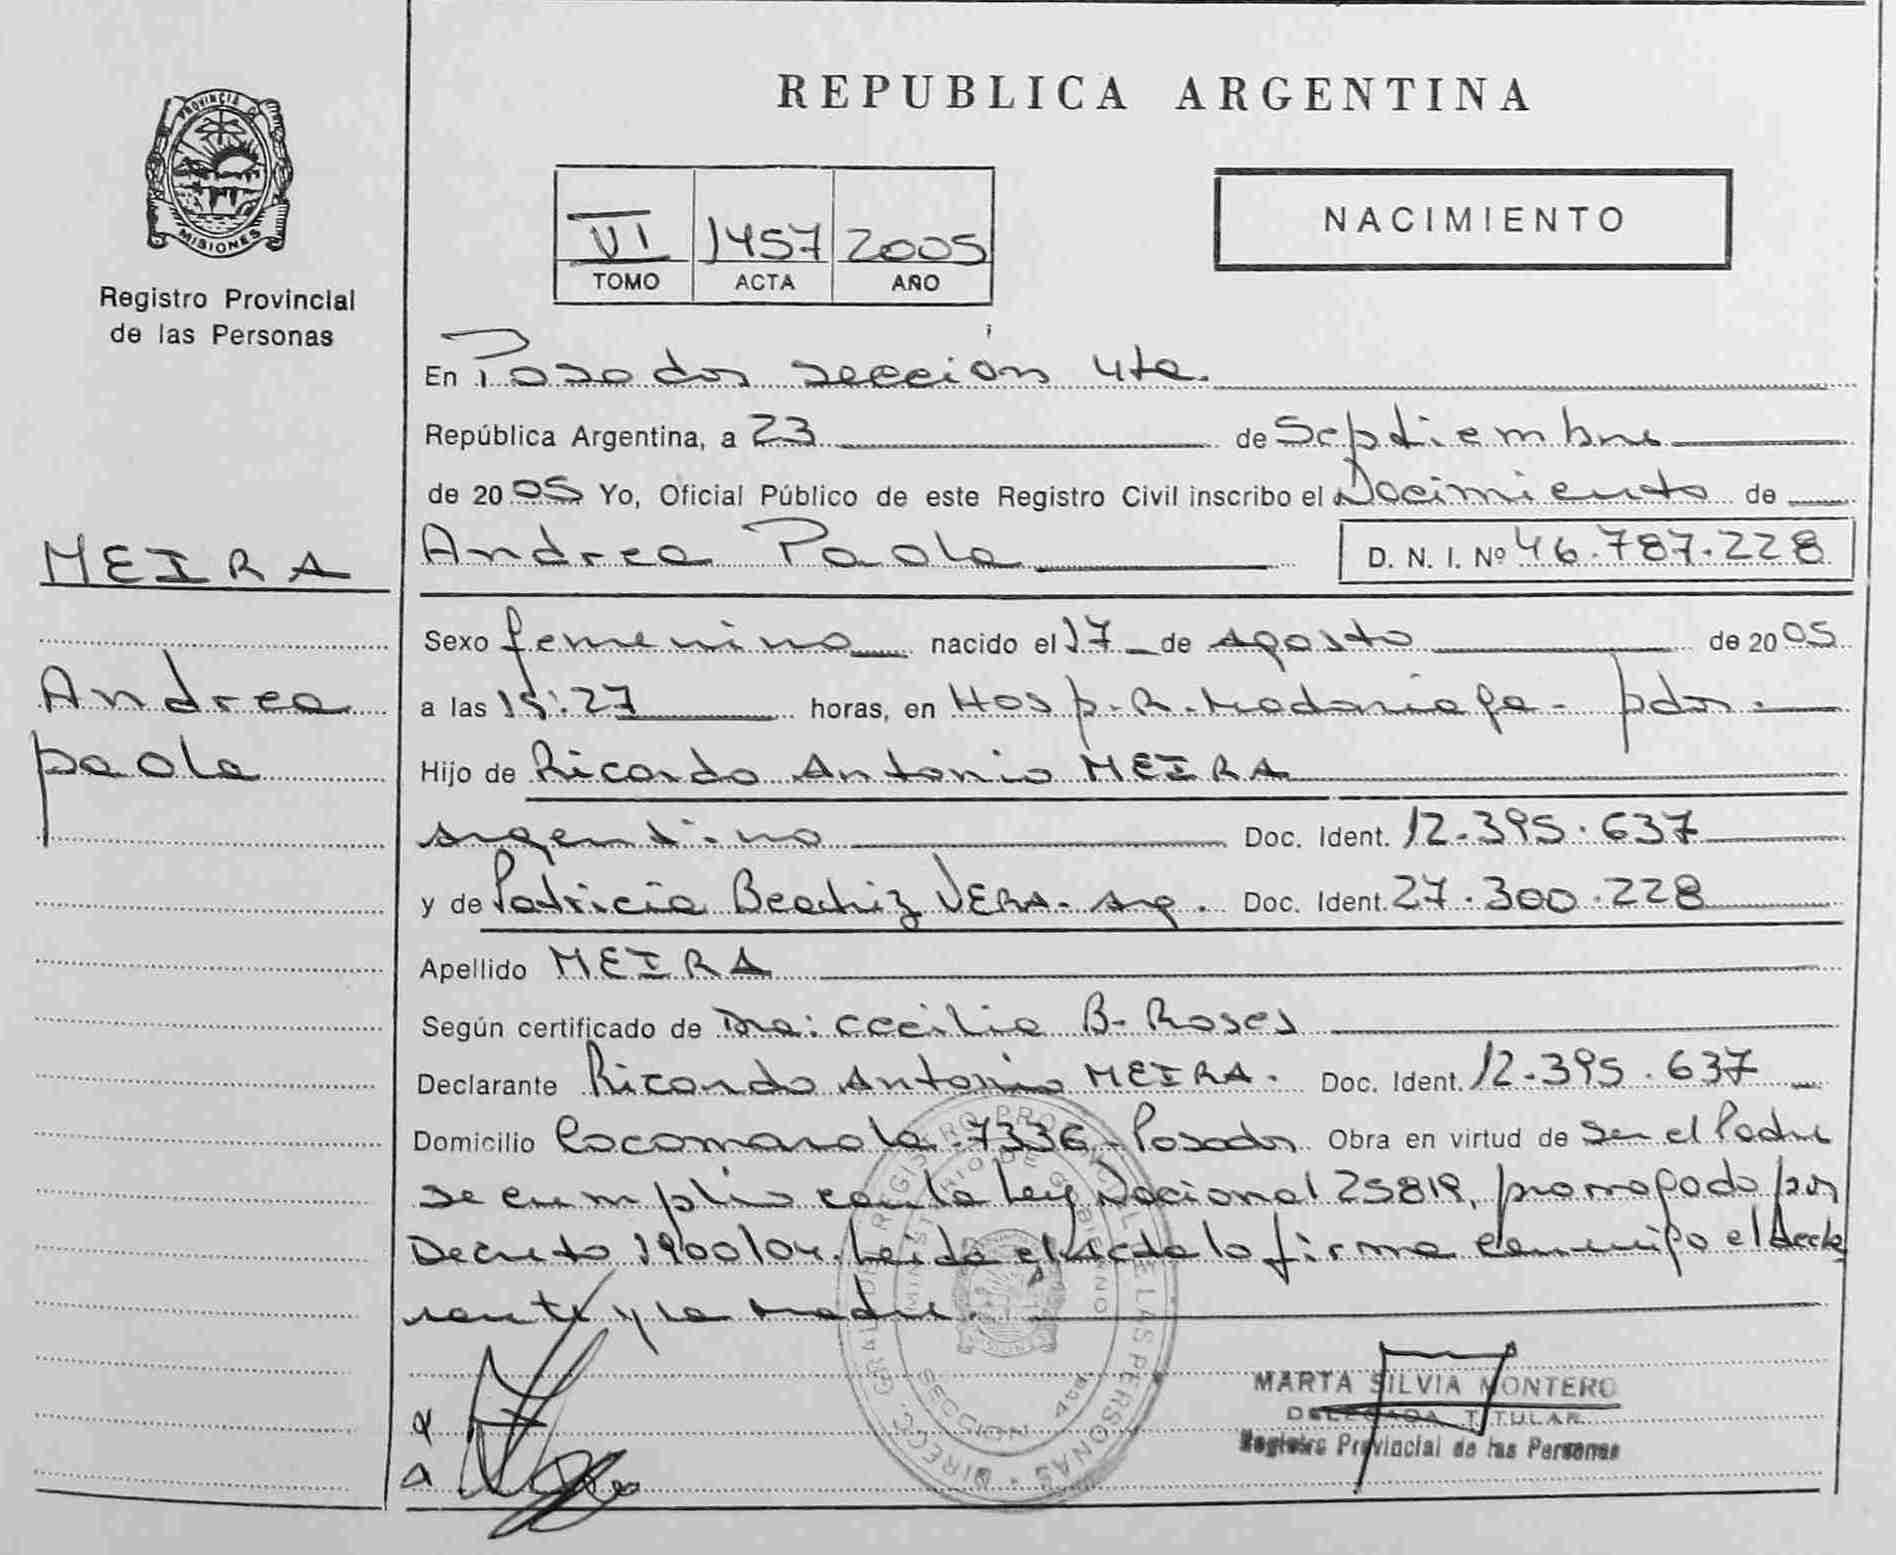 PROVINCIA DE
MISIONES
Registro Provincial
de las Personas
MEIRA
Andrea
paola
REPUBLICA ARGENTINA
VI 1457 2005
TOMO ACTA AÑO
NACIMIENTO
En Posadas sección 4ta.
República Argentina, a 23 de Septiembre
de 2005 Yo, Oficial Público de este Registro Civil inscribo el Nacimiento de
Andrea Paola D. N. I. Nº 46.787.228
Sexo femenino nacido el 17 de Agosto de 2005
a las 15:27 horas, en Hosp. R. Madariaga - pdas.
Hijo de Ricardo Antonio MEIRA
argentino Doc. Ident. 12.395.637
y de Patricia Beatriz VERA - Arg. Doc. Ident. 27.300.228
Apellido MEIRA
Según certificado de Dra: Cecilia B. Roses
Declarante Ricardo Antonio MEIRA. Doc. Ident. 12.395.637
Domicilio Cocomarola 7336 - Posadas Obra en virtud de Ser el Padre
se cumplio con la Ley Nacional 25819, prorrogado por
Decreto 1900/04. Leida el Acta la firma conmigo el decla
rante y la madre.
DIRECC. GRAL. DEL REGISTRO PROVINCIAL DE LAS PERSONAS
MINISTERIO DE GOBIERNO
SECCION 4ta
MARTA SILVIA MONTERO
DELEGADA TITULAR
Registro Provincial de las Personas